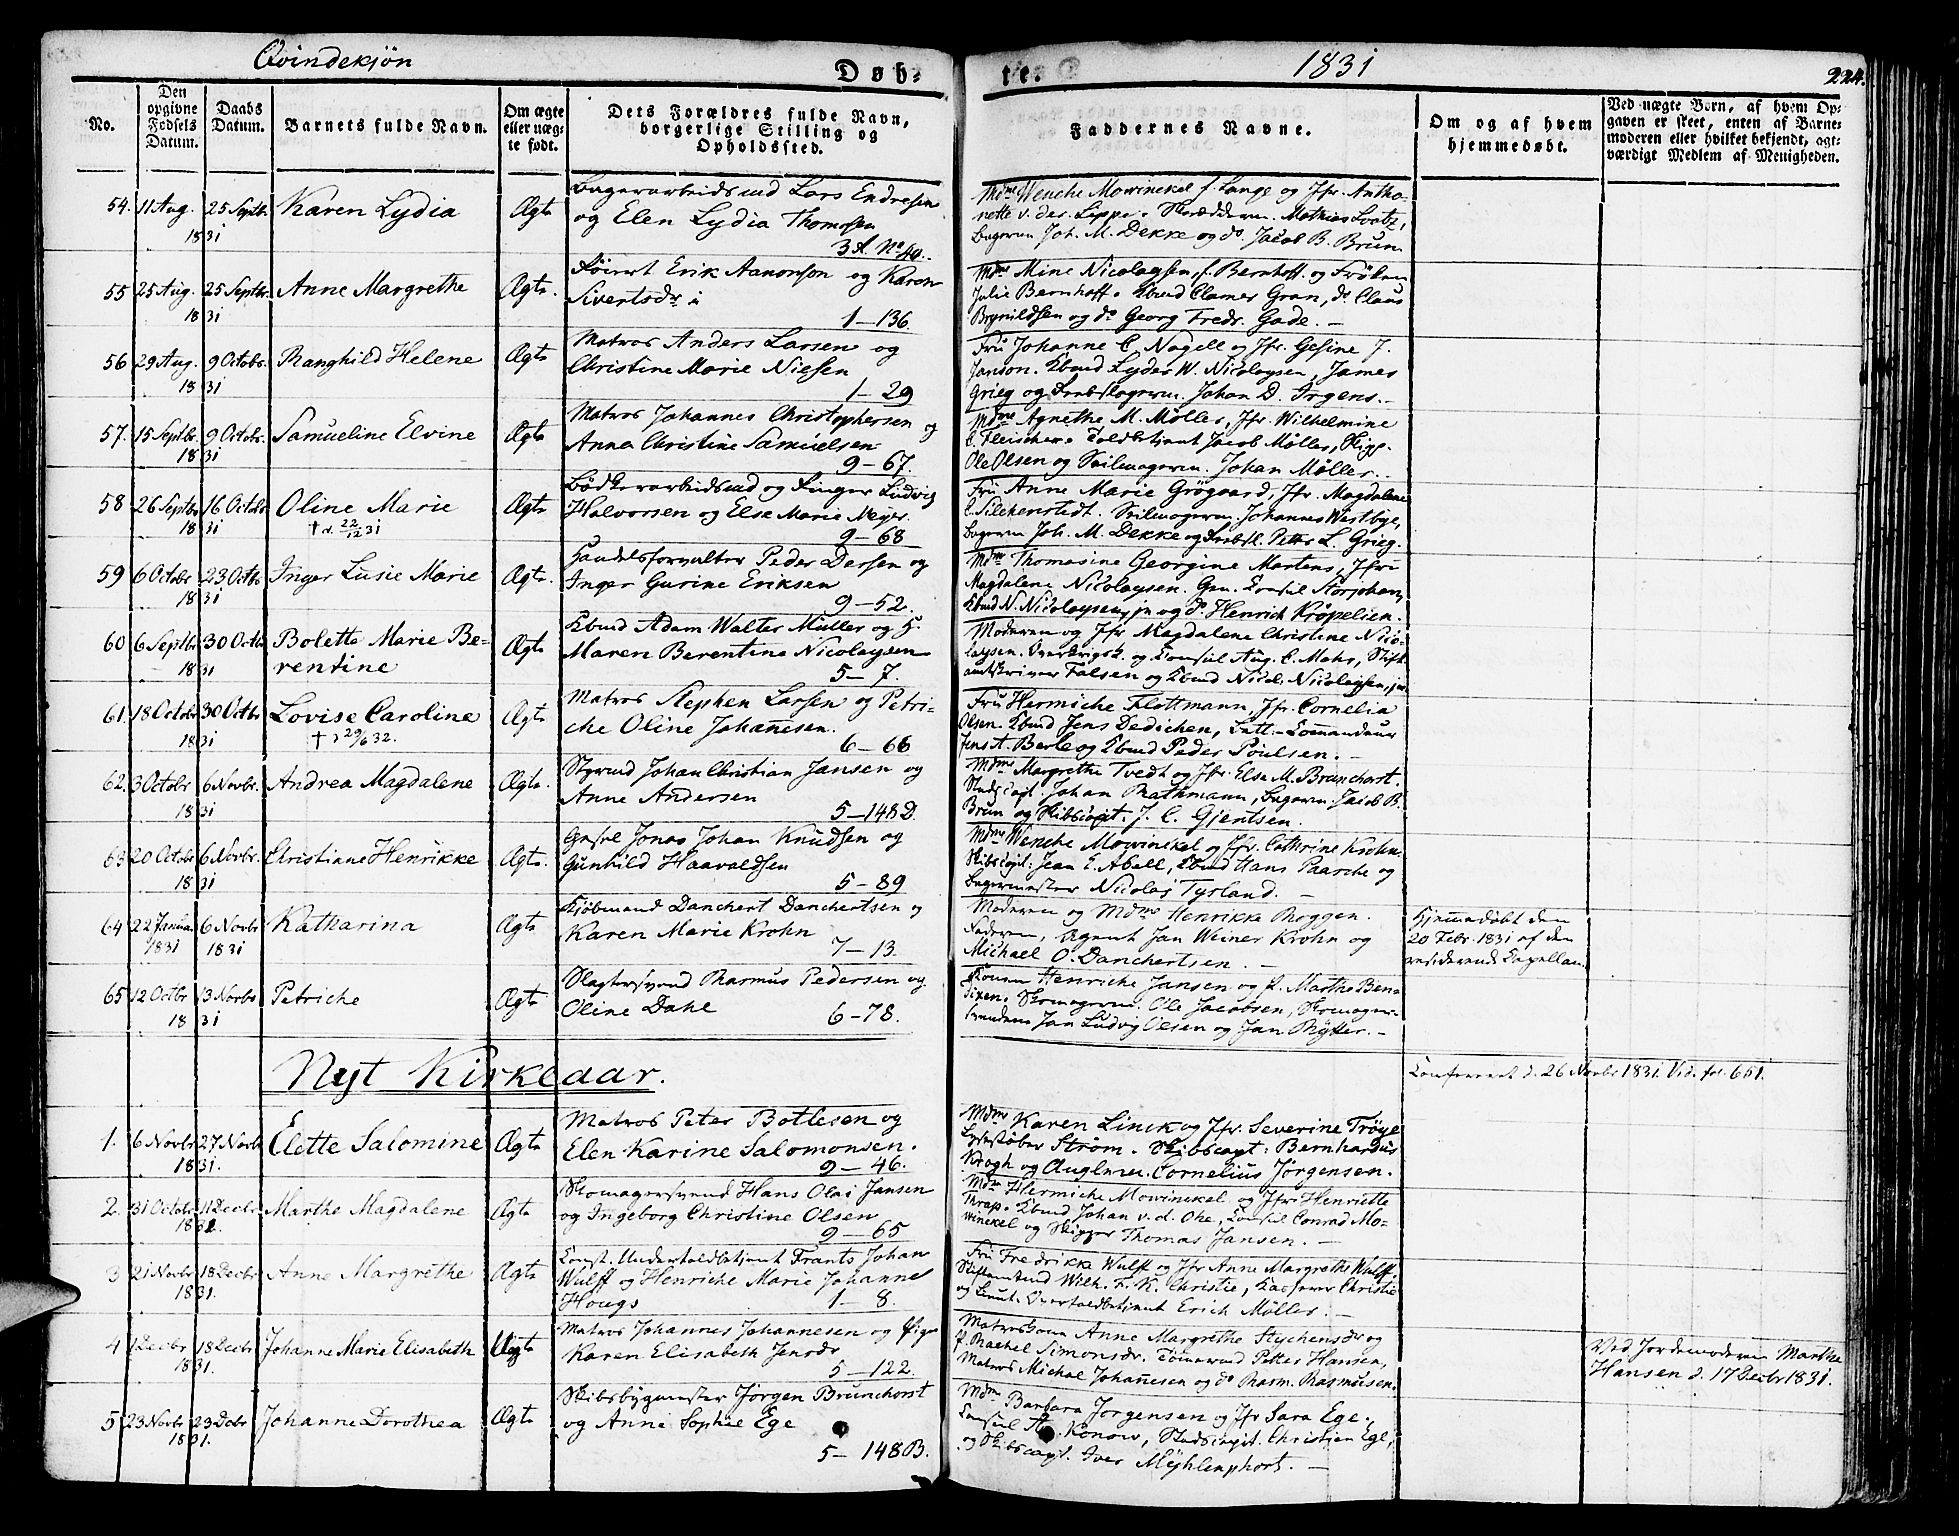 Qvindekjön
Døb- te. 1831
224.
No.
Den opgivne Fødsels Datum.
Daabs Datum.
Barnets fulde Navn.
Om ægte eller uægte født.
Dets Forældres fulde Navn, borgerlige Stilling og Opholdssted.
Faddernes Navne.
Om og af hvem hjemmedøbt.
Ved uægte Børn, af hvem Opgaven er skeet, enten af Barnemoderen eller hvilket bekjendt, agtværdigt Medlem af Menigheden.
54. 11 Aug. 25 Septbr. 1831 Karen Lydia Ægte
Lars Endresen
og Elen Lydia Thomesen
3 A. No 40.
Mdme Wenche Mowinckel f. Lange og Jfr. Antho-
nette v. der Lippe. Mathias
Joh. M. Dekke og do. Jacob B. Brun
55 25 Aug. 25 Septbr. 1831 Anne Margrethe Ægte.
Erik Aanonson og Karen
Sivertsdr i
1-136.
Mdme Mine Nicolaysen f. Bernhoff. og Frøken
Julie Bernhoff. Kbmd Clamer Gran, do. Claus
Brynildsen og do Georg Fredr. Gade. -
56 29 Aug. 9 Octobr. 1831 Ranghild Helene Ægte
Matros Anders Larsen og
Christine Marie Nielsen
1-29
Fru Johanne C. Nagell og Jfr. Gesine J.
Janson. Kbmd Lyder W. Nicolaysen, James
Grieg og Johan D. Irgens.-
57. 15 Septbr. 9 Octobr. 1831 Samueline Elvine Ægte
Matros Johannes Christophersen og
Anna Christine Samuelsen
9-67.
Mdme Agnethe M. Møller, Jfr. Wilhelmine
C. Fleischer. Toldbetjent Jacob Møller, Skipp.
Ole Olsen og Seilmagerm. Johan Møller.
58 26 Septbr 16 Octobr 1831 Oline Marie Ægte
† d. 22/12 31
Ludvig
Halvorsen og Else Marie Meyer.
9-68
Fru Anne Marie Grøgaard, Jfr. Magdalene
C. Silchenstedt. Seilmagerm. Johannes Westbye,
Joh. M. Dekke og Petter L. Grieg.
59 6 Octobr 23 Octbr 1831 Inger Lusie Marie Ægte.
Handelsforvalter Peder Dersen og
Inger Gurine Eriksen
9-52.
Mdme Thomasine Georgine Martens, Jfru
Magdalene Nicolaysen. Gen. Consul Storjohan,
Kbmd N. Nicolaysen, jn og do. Henrich Krøpelien.
60 6 Septbr 30 Octbr 1831 Bolette Marie Be-
rentine Ægte
Kbmd Adam Walter Müller og H.
Maren Berentine Nicolaysen
5-7.
Moderen og Jfr Magdalene Christine Nico-
laysen. og Consul Aug. C. Mohr, Stift-
amtskriver Falsen og Kbmd Nicol. Nicolaysen, jn
61. 18 Octobr 30 Octbr 1831 Lovise Caroline Ægte
† d 29/6 32.
Matros Stephen Larsen og Petri-
che Oline Johannesen.
6-66
Fru Hermiche Flottmann, Jfr. Cornelia
Olsen. Kbmd Jens Dedichen,
Jens A. Berle og Kbmd Peder Poulsen. -
62. 3 Octobr 6 Novbr. 1831 Andrea Magdalene Ægte.
Styrmd Johan Christian Jansen og
Anne Andersen
5-148 D.
Mdme Margrethe Tvedt og Jfr. Else M. Brunchorst.
Stadscapt. Johan Rathmann, Jacob B.
Brun og Skibscapt. J. C. Gjertsen.
63 20 Octobr 6 Novbr. 1831 Christiane Henrikke Ægte.
Jonas Johan Knudsen og
Gunhild Haavaldsen
5-89
Mdme Wenche Mowinckel og Jfr. Cathrine Krohn.
Skibscapt: Jean E. Abell, Kbmd Hans Paasche og
Bagermester Nicolaj Tysland.
64 22 Januar 1831 6 Novbr 1831 Katharina Ægte
Kjøbmand Danchert Danchertsen og
Karen Marie Krohn
7-13.
Moderen og Mdme Henrikke Roggen.
Faderen, Agent Jan Weiner Krohn og
Michael O. Danchertsen. -
Hjemmedøbt den
20 Febr. 1831 af den
residerende Capellan.
65 12 Octbr 13 Novbr 1831 Petriche Ægte
Slagtersvend Rasmus Pedersen og
Oline Dahl
6-78.
Konen Henriche Jansen og P. Marthe Ben-
dixen. Skomagerm. Ole Jacobsen, Skomager-
svendene Jan Ludvig Olsen og Jan Rytter. -
Nyt Kirkeaar.
Confereret d. 26 Novbr 1831. Vid. fol. 651.
1. 6 Novbr 27 Novbr 1831. Elette Salomine Ægte
Matros Peter Bottlesen og
Elen Karine Salomonsen.
9-46.
Mdme Karen Linck og Jfr. Severine Trøye
Strøm. Skibscapt: Bernhardus
Krogh og Cornelius Jørgensen.
2. 31 Octobr 11 Decbr 1831. Marthe Magdalene Ægte
Skomagersvend Hans Olai Jansen
og Ingeborg Christine Olsen
9-65
Mdme Hermiche Mowinckel og Jfr. Henriette
Thrap. Kbmd Johan v. d. Ohe, Consul Conrad Mo-
winckel og Skipper Thomas Jansen. -
3 21 Novbr 18 Decbr 1831. Anne Margrethe Ægte
Const. Undertoldbetjent Frants Johan
Wulff og Henriche Marie Johanne
Hougs 1-8.
Fru Fredrikke Wulff og Jfr Anne Margrethe Wulff,
Stiftamtmd Wilh. F. K. Christie, Kasserer Christie
og Overtoldbetjent Erich Møller. -
4 1 Decbr 18 Decbr 1831. Johanne Marie Elisabeth Uægte
Matros Johannes Johannesen og Pige
Karen Elisabeth Jensdr
5-122.
Matroskone Anne Margrethe Stephensdr og
P. Rachel Simonsdr. Tømmermd Petter Hansen,
Matros Michael Johannesen og do Rasm. Rasmusen.
Ved Jordemoderen Marthe
Hansen d. 17 Decbr 1831.
5 23 Novbr 23 Decbr 1831. Johanne Dorothea Ægte
Skibsbygmester Jørgen Brunchorst
og Anne Sophie Ege
5-148 B.
Mdme Barbara Jørgensen og Jfr Sara Ege.
Consul Konow, Stadscapt. Christien Ege,
og Skibscapt. Iver Mejhlenphort. -